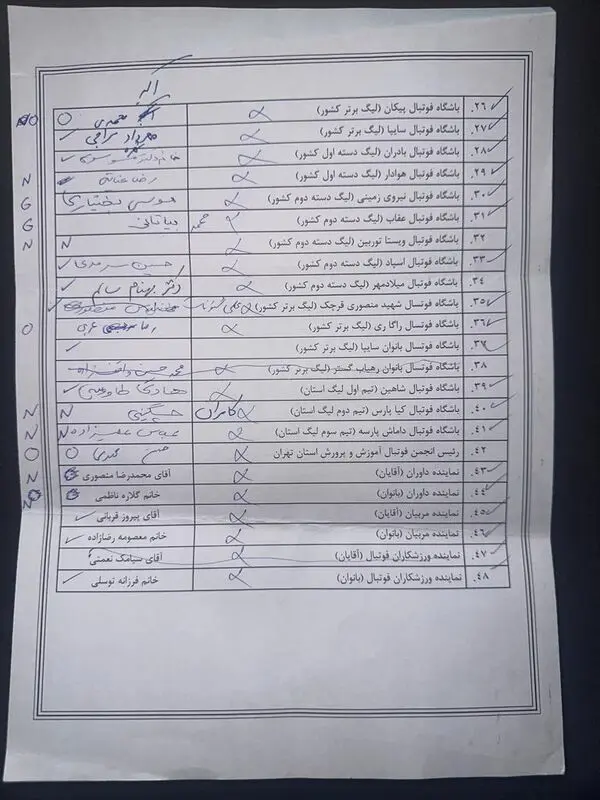 اکبر
۲۶. باشگاه فوتبال پیکان (لیگ برتر کشور) محمدی O NO
۲۷. باشگاه فوتبال سایپا (لیگ برتر کشور) مهرداد سراجی
۲۸. باشگاه فوتبال بادران (لیگ دسته اول کشور)
۲۹. باشگاه فوتبال هوادار (لیگ دسته اول کشور) رضا عنایتی N
۳۰. باشگاه فوتبال نیروی زمینی (لیگ دسته دوم کشور) موسی بختیاری G
۳۱. باشگاه فوتبال عقاب (لیگ دسته دوم کشور) محمد بیاتانی G
۳۲. باشگاه فوتبال ویستا توربین (لیگ دسته دوم کشور) N N
۳۳. باشگاه فوتبال اسپاد (لیگ دسته دوم کشور) حسین سرمدی
۳۴. باشگاه فوتبال میلادمهر (لیگ دسته دوم کشور) دکتر بهنام سالم
۳۵. باشگاه فوتسال شهید منصوری قرچک (لیگ برتر کشور) علی
۳۶. باشگاه فوتسال راگا ری (لیگ برتر کشور) رضا عربی O
۳۷. باشگاه فوتسال بانوان سایپا (لیگ برتر کشور)
۳۸. باشگاه فوتسال بانوان رهیاب گستر (لیگ برتر کشور) محمد حسین
۳۹. باشگاه فوتبال شاهین (تیم اول لیگ استان) هادی طاووسی
۴۰. باشگاه فوتبال کیا پارس (تیم دوم لیگ استان) کامران N N
۴۱. باشگاه فوتبال داماش پارسه (تیم سوم لیگ استان) عباس علیزاده N N
۴۲. رئیس انجمن فوتبال آموزش و پرورش استان تهران حسن O O
۴۳. نماینده داوران (آقایان) آقای محمدرضا منصوری N
۴۴. نماینده داوران (بانوان) خانم گلاره ناظمی N
۴۵. نماینده مربیان (آقایان) آقای پیروز قربانی
۴۶. نماینده مربیان (بانوان) خانم معصومه رضازاده
۴۷. نماینده ورزشکاران فوتبال (آقایان) آقای سیامک نعمتی
۴۸. نماینده ورزشکاران فوتبال (بانوان) خانم فرزانه توسلی